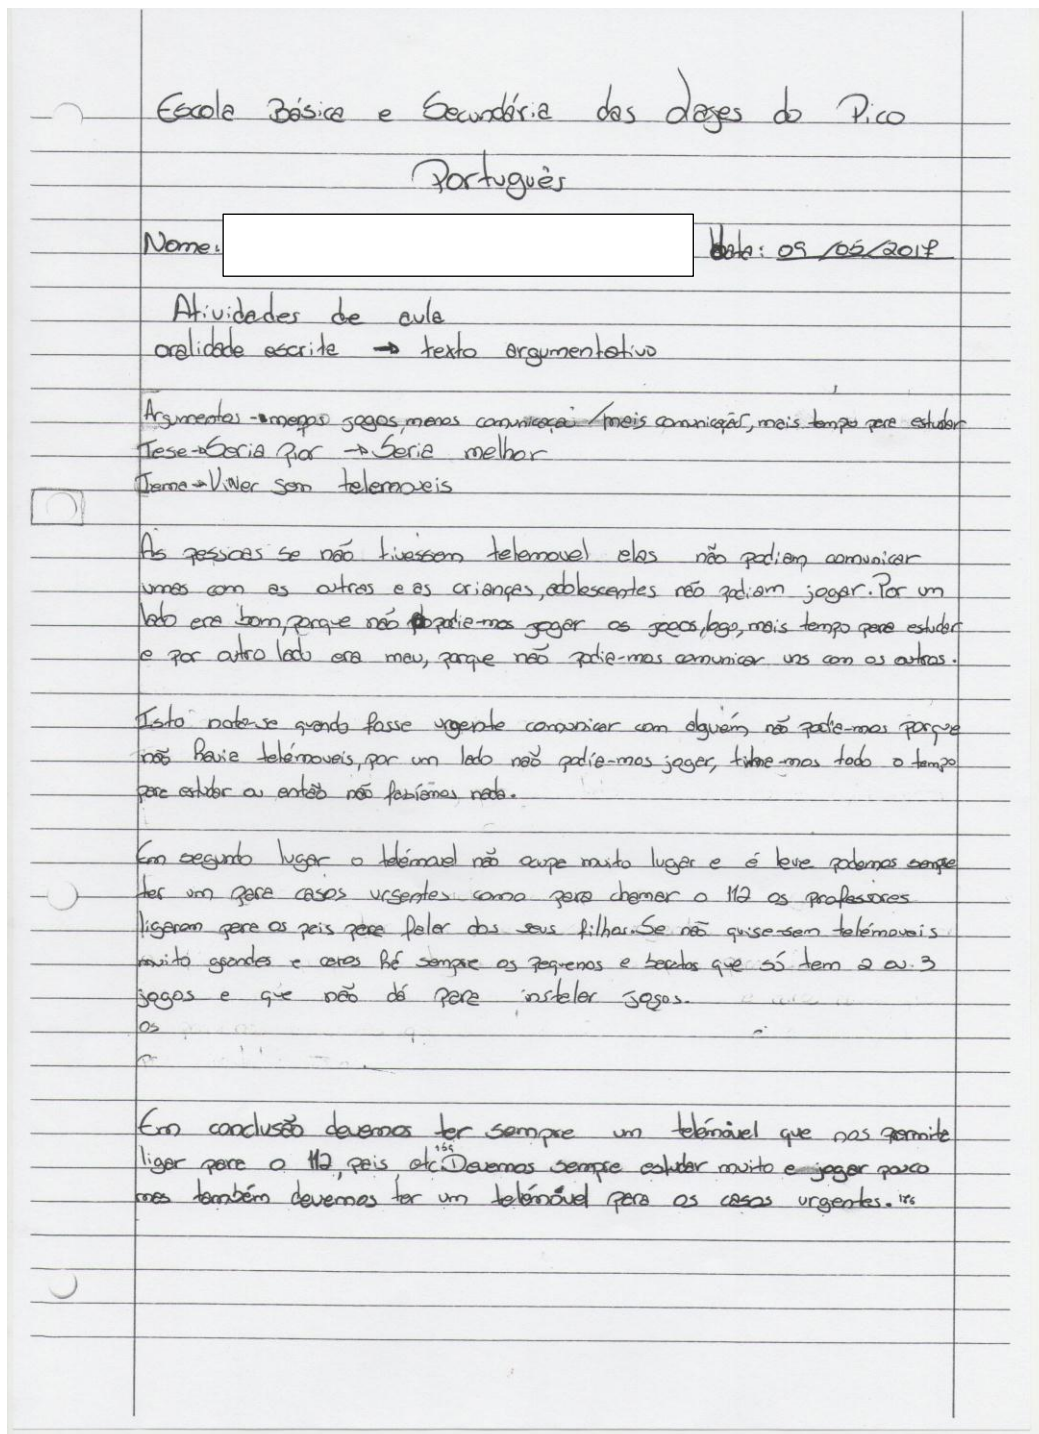 Escola Básica e Secundária das Lages do Pico
Português
Nome: Data: 09/05/2017
Atividades de aula
oralidade escrita → texto argumentativo
Argumentos → menos jogos, menos comunicaçai / mais comunicação, mais tempo para estudar
Tese → Seria Pior → Seria melhor
Tema → Viver sem telemoveis
As pessoas se não tivessem telemovel elas não podiam comunicar
umas com as outras e as crianças, adolescentes não podiam jogar. Por um
lado era bom, porque não podia-mos jogar os jogos, logo, mais tempo para estudar
e por outro lado era mau, porque não podia-mos comunicar uns com os outros.
Isto nota-se quando fosse urgente comunicar com alguém, não podia-mos porque
não havia telémoveis, por um lado não podía-mos jogar, tinha-mos todo o tempo
para estudar ou então não faziamos nada.
Em segundo lugar o telémovel não ocupa muito lugar e é leve podemos sempre
ter um para casos urgentes como para chamar o 112 os professores
ligaram para os pais para falar dos seus filhos. Se não quise-sem telémoveis
muito grandes e caros há sempre os pequenos e baratos que só tem 2 ou 3
jogos e que não dá para instalar jogos.
os
Em conclusão devemos ter sempre um telémóvel que nos permite
ligar para o 112, pais etc. Devemos sempre estudar muito e jogar pouco
mas também devemos ter um telémóvel para os casos urgentes.